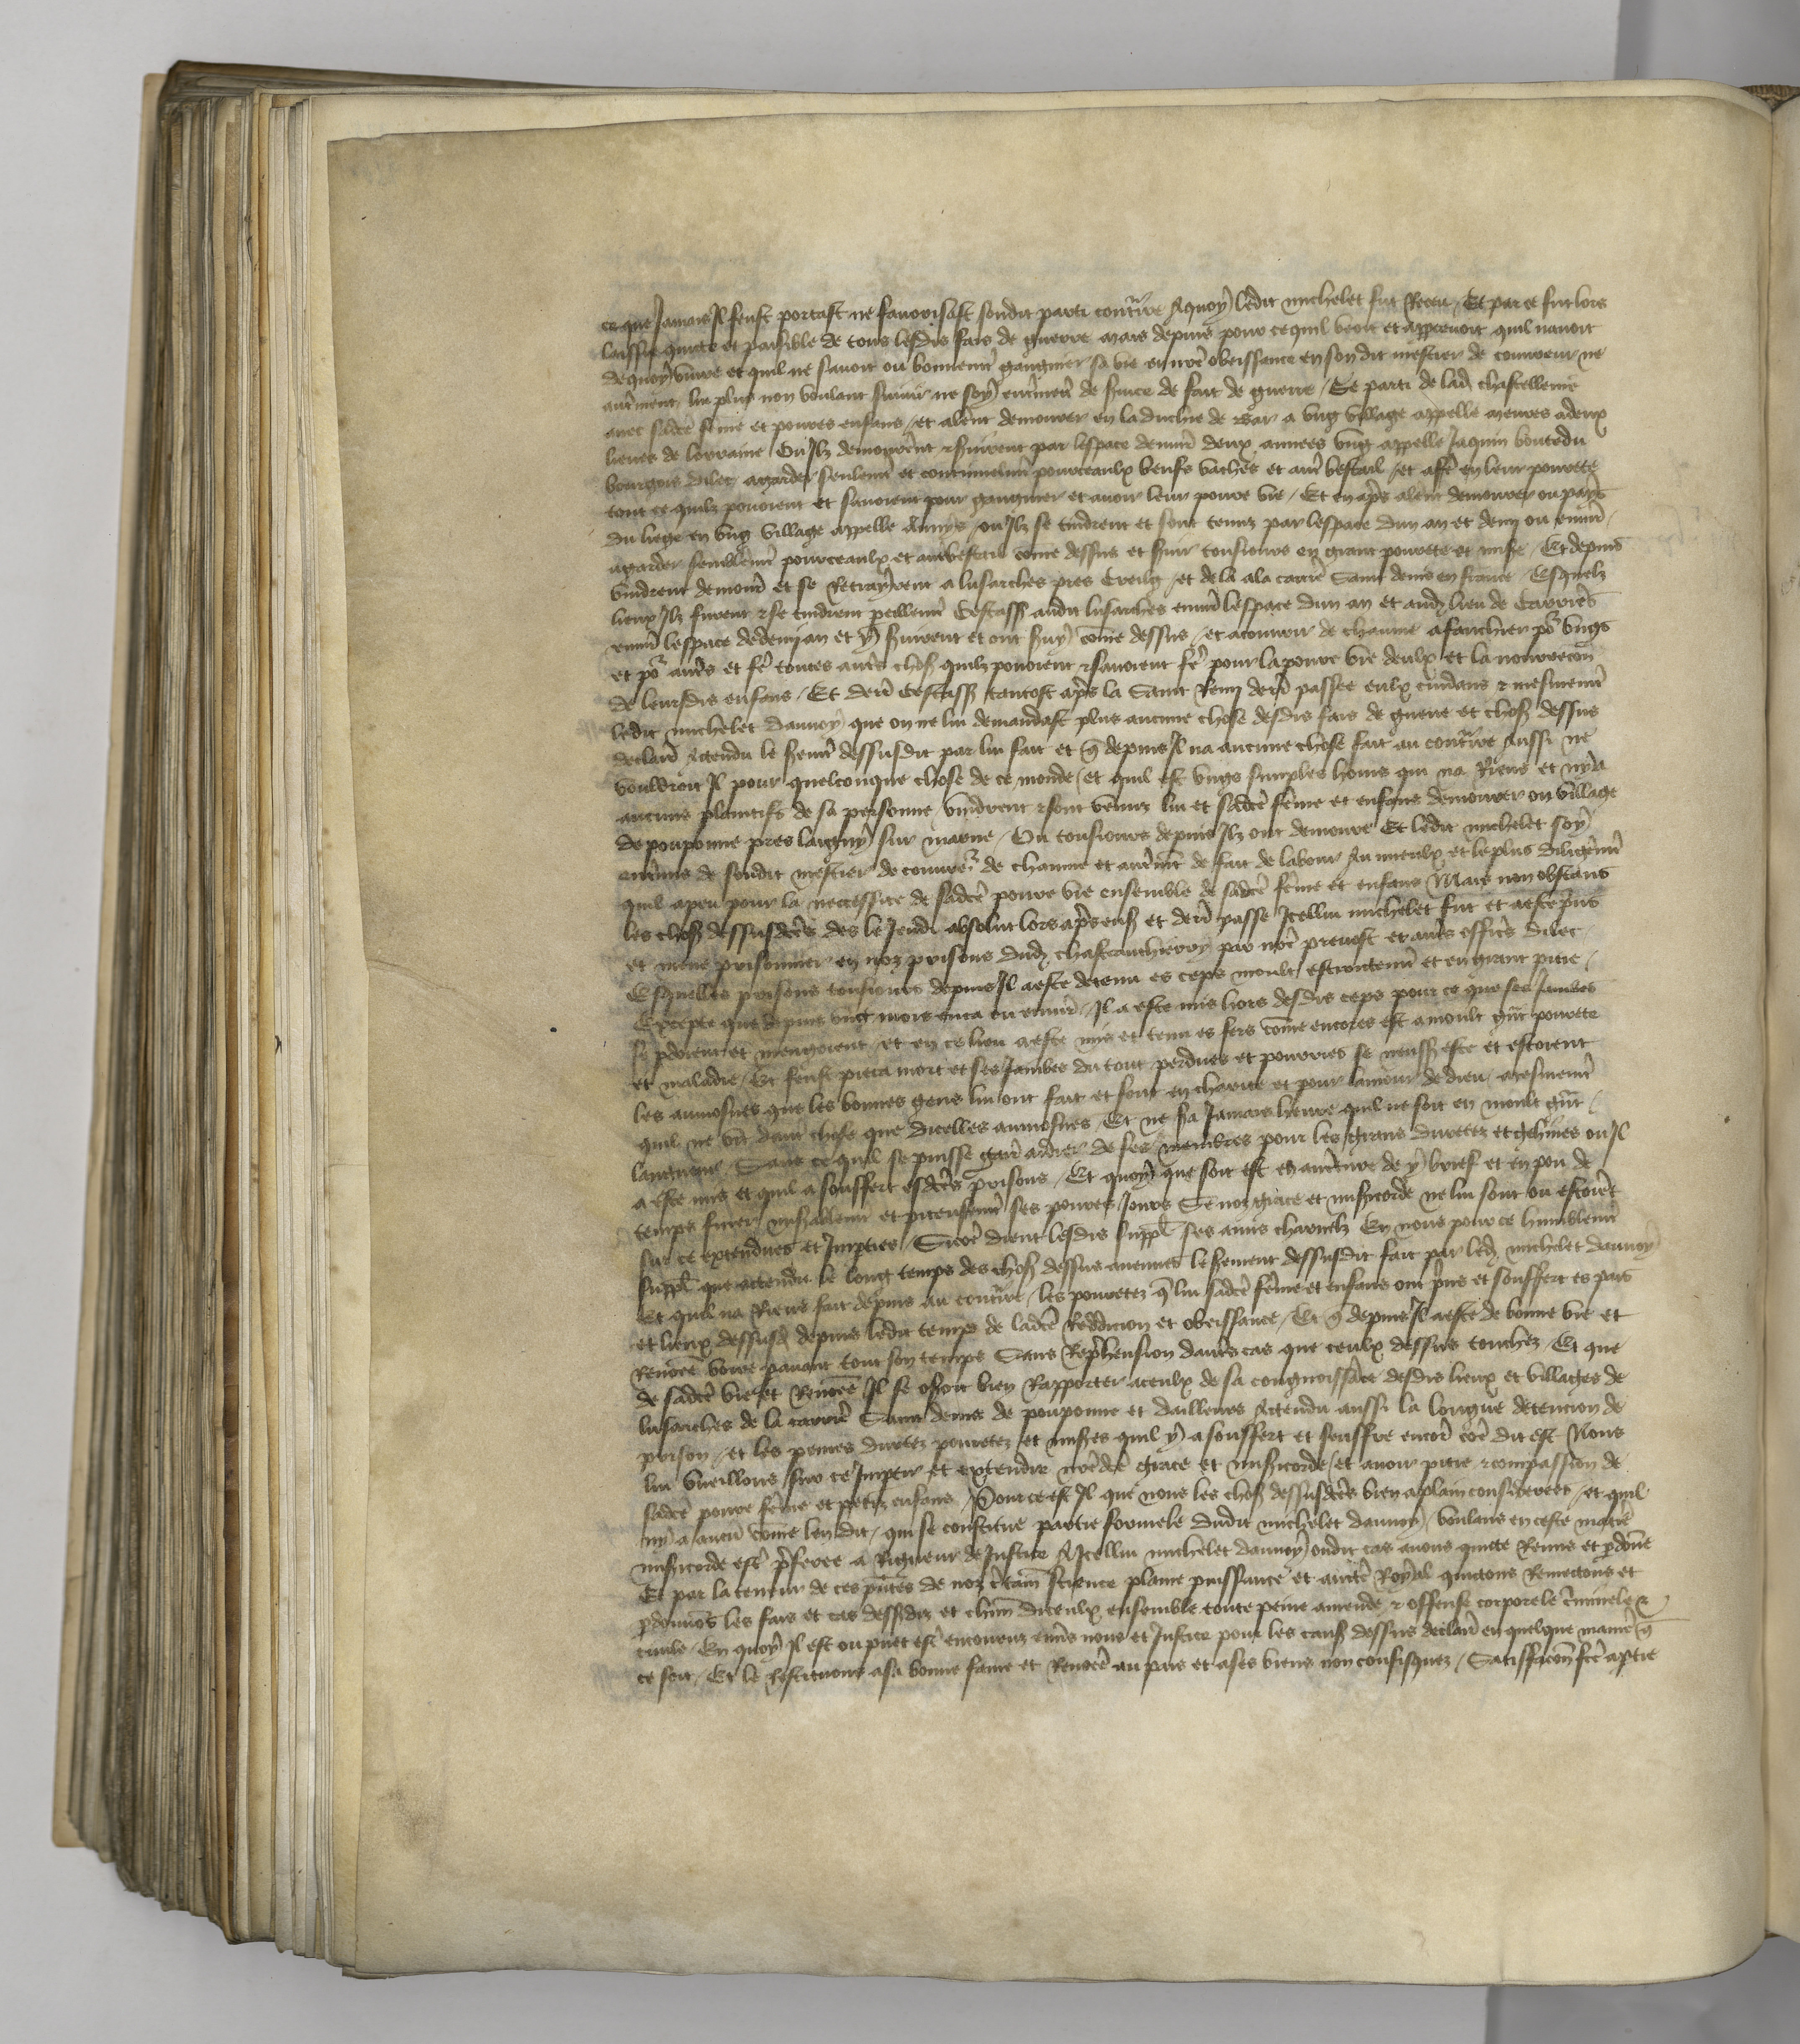 ce que Jamais Il feust portast ne favorisast sondit parti contrre Aquoy ledit michelet fut Receu / Et par ce fut lors
laissie quicte et paisible de tous lesdis fais de guerre mais depuis pour cequil veoit et apprcevoit quil navoit
dequoy vivre et quil ne savoit ou bonnemt gaugnier sa vie en nre obeissance en son dit mestier de couvreur ne
autrement lui plus non voulant suivir ne soy entrmetre de suice de fait de guerre / Se parti de lad chastellenie
avec sadce feme et povres enfans / et alerent demourer en la duchie de Bar a ung village appelle a deux
lieues de lorraine Ou Ilz demourerent & suirent par lespace denviro deux annees ung appelle Jaquin boutedu
bourgois dilec agarder seulemt et pourceaulx beufs vaches et autre bestail / et affe en leur povrete
tout ce quilz povoient et savoient pour gaugnier et avoir leur povre vie / Et en apres alerent demourer ou pays
du liege en ung village appelle Annys / ou Ilz se tindrent et sont tenuz par lespace dun an et demi ou enviro /
agarder semblemt pourceaulx et autre bestail come dessus et suir tousiours en grant povrete et mise / Et depuis
vindrent demourer et se Retrayrent a lusarches pres Creilg / et de la ala carrie Saint denis en france / Esquelz
lieux Ilz furent & se tindrent Cestass audit lusarches enviro lespace dun an et aud lieu de Carries
enviro lespace dedemi an et y suirent et ont suy come dessus / et acouvrir de chaume afauchier pour ungs
et pour autres et fe toutes autres choses quilz povoient & savoient fe pour la povre vie deulx et la nourrecon
de leursdis enfans / Et dern Cestass tantost apres la Saint Remi dern passee eulx cuidans & mesmemt
ledit michelet dannoy que on ne lui demandast plus aucune chose desdis fais de guerre et choses dessus
declares Attendu le sermt dessusdit par lui fait et q depuis Il na aucune chose fait au contrre Aussi ne
vouldroit Il pour quelconque chose de ce monde / et quil est ungs simples homs qui na Riens et nya
aucuns plaintifs de sa personne vindrent & sont venuz lui et sadce feme et enfans demourer ou village
de pouponne pres laigny sur marne / Ou tousiours depuis Ilz ont demoure Et ledit michelet soy
entrmis de sondit mestier de couvreur de chaume et autremt de fait de labour Au mieulx et leplus diligemt
quil apeu pour la neccessite de sadce povre vie ensemble de sadce feme et enfans Mais non obstans
les choses dessusdces des le Jeudi absolut lors apres ens et dern passe Icellui michelet fut et aeste pris
et mene prisonnier en noz prisons dud chasteauthierry par nre prevost et autres offices dilec /
Esquelles prisons tousiours depuis Il aeste detenu es ceps moult estroictemt et en grant pitie /
Excepte que depuis ung mois enca ou enviro / Il a este mis hors desdis ceps pour ce que ses Jambes
se pdoient et mengoient / et en ce lieu aeste mis et tenu es fers come encores est a moult grt povrete
et maladie / Et feust pieca mort et ses Jambes du tout perdues et pourries se neusst este et estoient
les aumosnes que les bonnes gens lui ont fait et font en charite et pour lamour de dieu mesmemt
quil ne vit dautre chose que dicelles aumosnes / Et ne sa Jamais heure quil ne soit en moult grt /
/ Sans ce quil se puisse aidier de ses membres pour les grans duretez et gehines ou Il
a este mis et quil a souffert esdces prisons / Et quoy que soit est en avnture de y brief et en pou de
temps finer misablemt et piteusemt ses povres Jours Se noz grace et misicorde ne lui sont ou estoiet
sur ce extendues et Impties / Sicoe dient lesdis suppl ses amis charnelz En nous pour ce humblemt
suppl que attendu le long temps des choses dessus avenues le serment dessusdit fait par led michelet dannoy
Et quil na Riens fait depuis au contrre / les povretez q lui sadce feme et enfans ont pris et souffert es pais
et lieux dessusd depuis ledit temps de ladce Reddicion et obeissance / Et q depuis Il aeste de bonne vie et
Renomee voire pavant tout son temps Sans Reprhension dautres cas que ceulx dessus touchez / Et que
de sadce vie et Renomee Il se osoit bien Rapporter aceulx de sa congnoissance desdis lieux et villages de
lusarches de la carrie Saint denis de pouponne et dailleurs Attendu aussi la longue detencion de
prison / et les peines durtez povretez et mises quil y a souffert et seuffre encore coe dit est Nous
lui vueillons sur ce Impter et extendre nredce grace et misicorde / et avoir pitie & compassion de
sadce povre feme et petiz enfans / Pource est Il que nous les choses dessusdces bien aplain considerees / et quil
ny a aucun come len dit / qui se constitue partie formele dudit michelet dannoy / voulans en ceste matie
misicorde estre pfee a Rigueur de Justice A Icellui michelet dannoy ondit cas avons quicte Remis et pdonne
Et par la teneur de ces pntes de noz ctain science plaine puissance et aucte Royal quictons Remectons et
pdonnos les fais et cas dessusdiz et chun diceulx ensemble toute peine amende & offense corporele cminele &
civile / En quoy Il est ou puet est encouruz envrs nous et Justice pour les causes dessus declares en quelque manie q
ce soit / Et le Restituons asa bonne fame et Renomee au pais et ases biens non confisquez / Satisfacon fce aptie